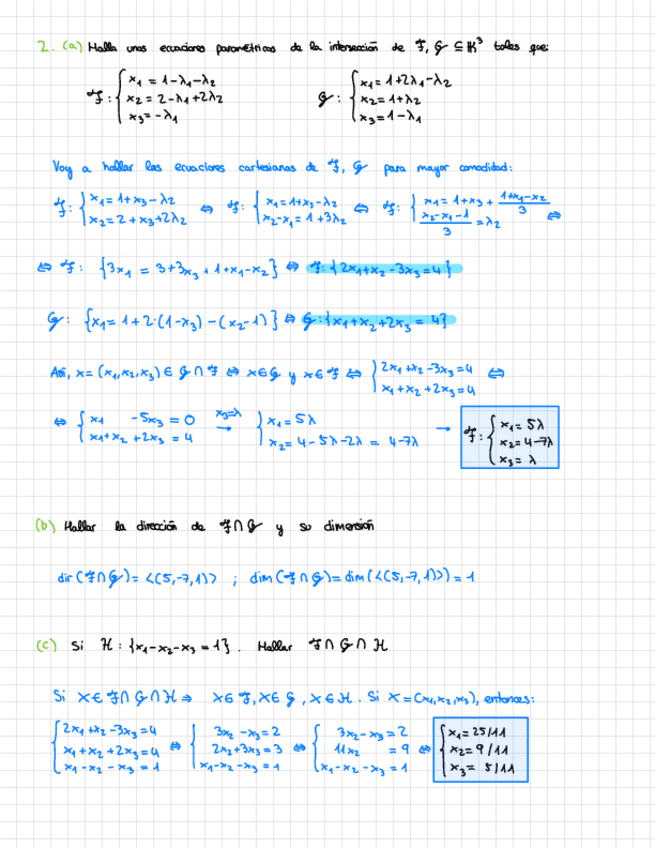 2. (a) Halla unas ecuaciones paramétricas de la intersección de F, G ⊆ K³ tales que:
F: { x₁ = 1-λ₁-λ₂    G: { x₁ = 1+2λ₁-λ₂
x₂ = 2-λ₁+2λ₂    x₂ = 1+λ₂
x₃ = -λ₁    x₃ = 1-λ₁
Voy a hallar las ecuaciones cartesianas de F, G para mayor comodidad:
F: { x₁ = 1+x₃-λ₂ ⇔ F: { x₁ = 1+x₃-λ₂ ⇔ F: { x₁ = 1+x₃+ (1+x₁-x₂)/3
x₂ = 2+x₃+2λ₂    x₂-x₁ = 1+3λ₂    (x₂-x₁-1)/3 = λ₂ ⇔
⇔ F: {3x₁ = 3+3x₃+1+x₁-x₂} ⇔ F: {2x₁+x₂-3x₃=4}
G: {x₁ = 1+2·(1-x₃)-(x₂-1)} ⇔ G: {x₁+x₂+2x₃ = 4}
Así, x = (x₁,x₂,x₃) ∈ G∩F ⇔ x∈G y x∈F ⇔ { 2x₁+x₂-3x₃=4 ⇔
x₁+x₂+2x₃=4
⇔ { x₁ -5x₃ = 0 x₃=λ → { x₁ = 5λ → F: { x₁ = 5λ
x₁+x₂+2x₃ = 4    x₂ = 4-5λ-2λ = 4-7λ    x₂ = 4-7λ
x₃ = λ
(b) Hallar la dirección de F∩G y su dimensión
dir(F∩G) = <(5,-7,1)> ; dim(F∩G) = dim(<(5,-7,1)>) = 1
(c) Si H: {x₁-x₂-x₃ = 1}. Hallar F∩G∩H
Si X∈F∩G∩H ⇒ X∈F, X∈G, X∈H. Si X=(x₁,x₂,x₃), entonces:
{ 2x₁+x₂-3x₃=4 ⇔ { 3x₂-x₃=2 ⇔ { 3x₂-x₃=2 ⇔ { x₁ = 25/11
x₁+x₂+2x₃=4    2x₂+3x₃=3    11x₂ = 9    x₂ = 9/11
x₁-x₂-x₃=1    x₁-x₂-x₃=1    x₁-x₂-x₃=1    x₃ = 5/11